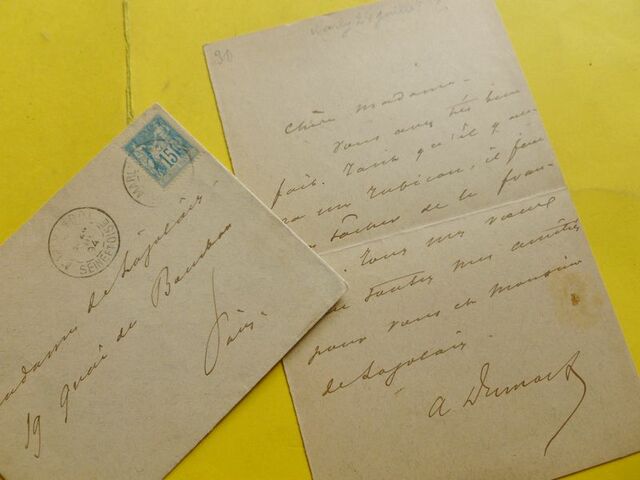 Madame de Lajolais
19 quai de Bourbon
Paris
15
SEINE-ET-OISE
30
Chère Madame
vous avez très bien
fait. Tant qu'il y au-
ra un rubicon, il fau
tâcher de le fran-
Tous mes vœux
toutes mes amitiés
pour vous et Monsieur
de Lajolais.
A Dumas f